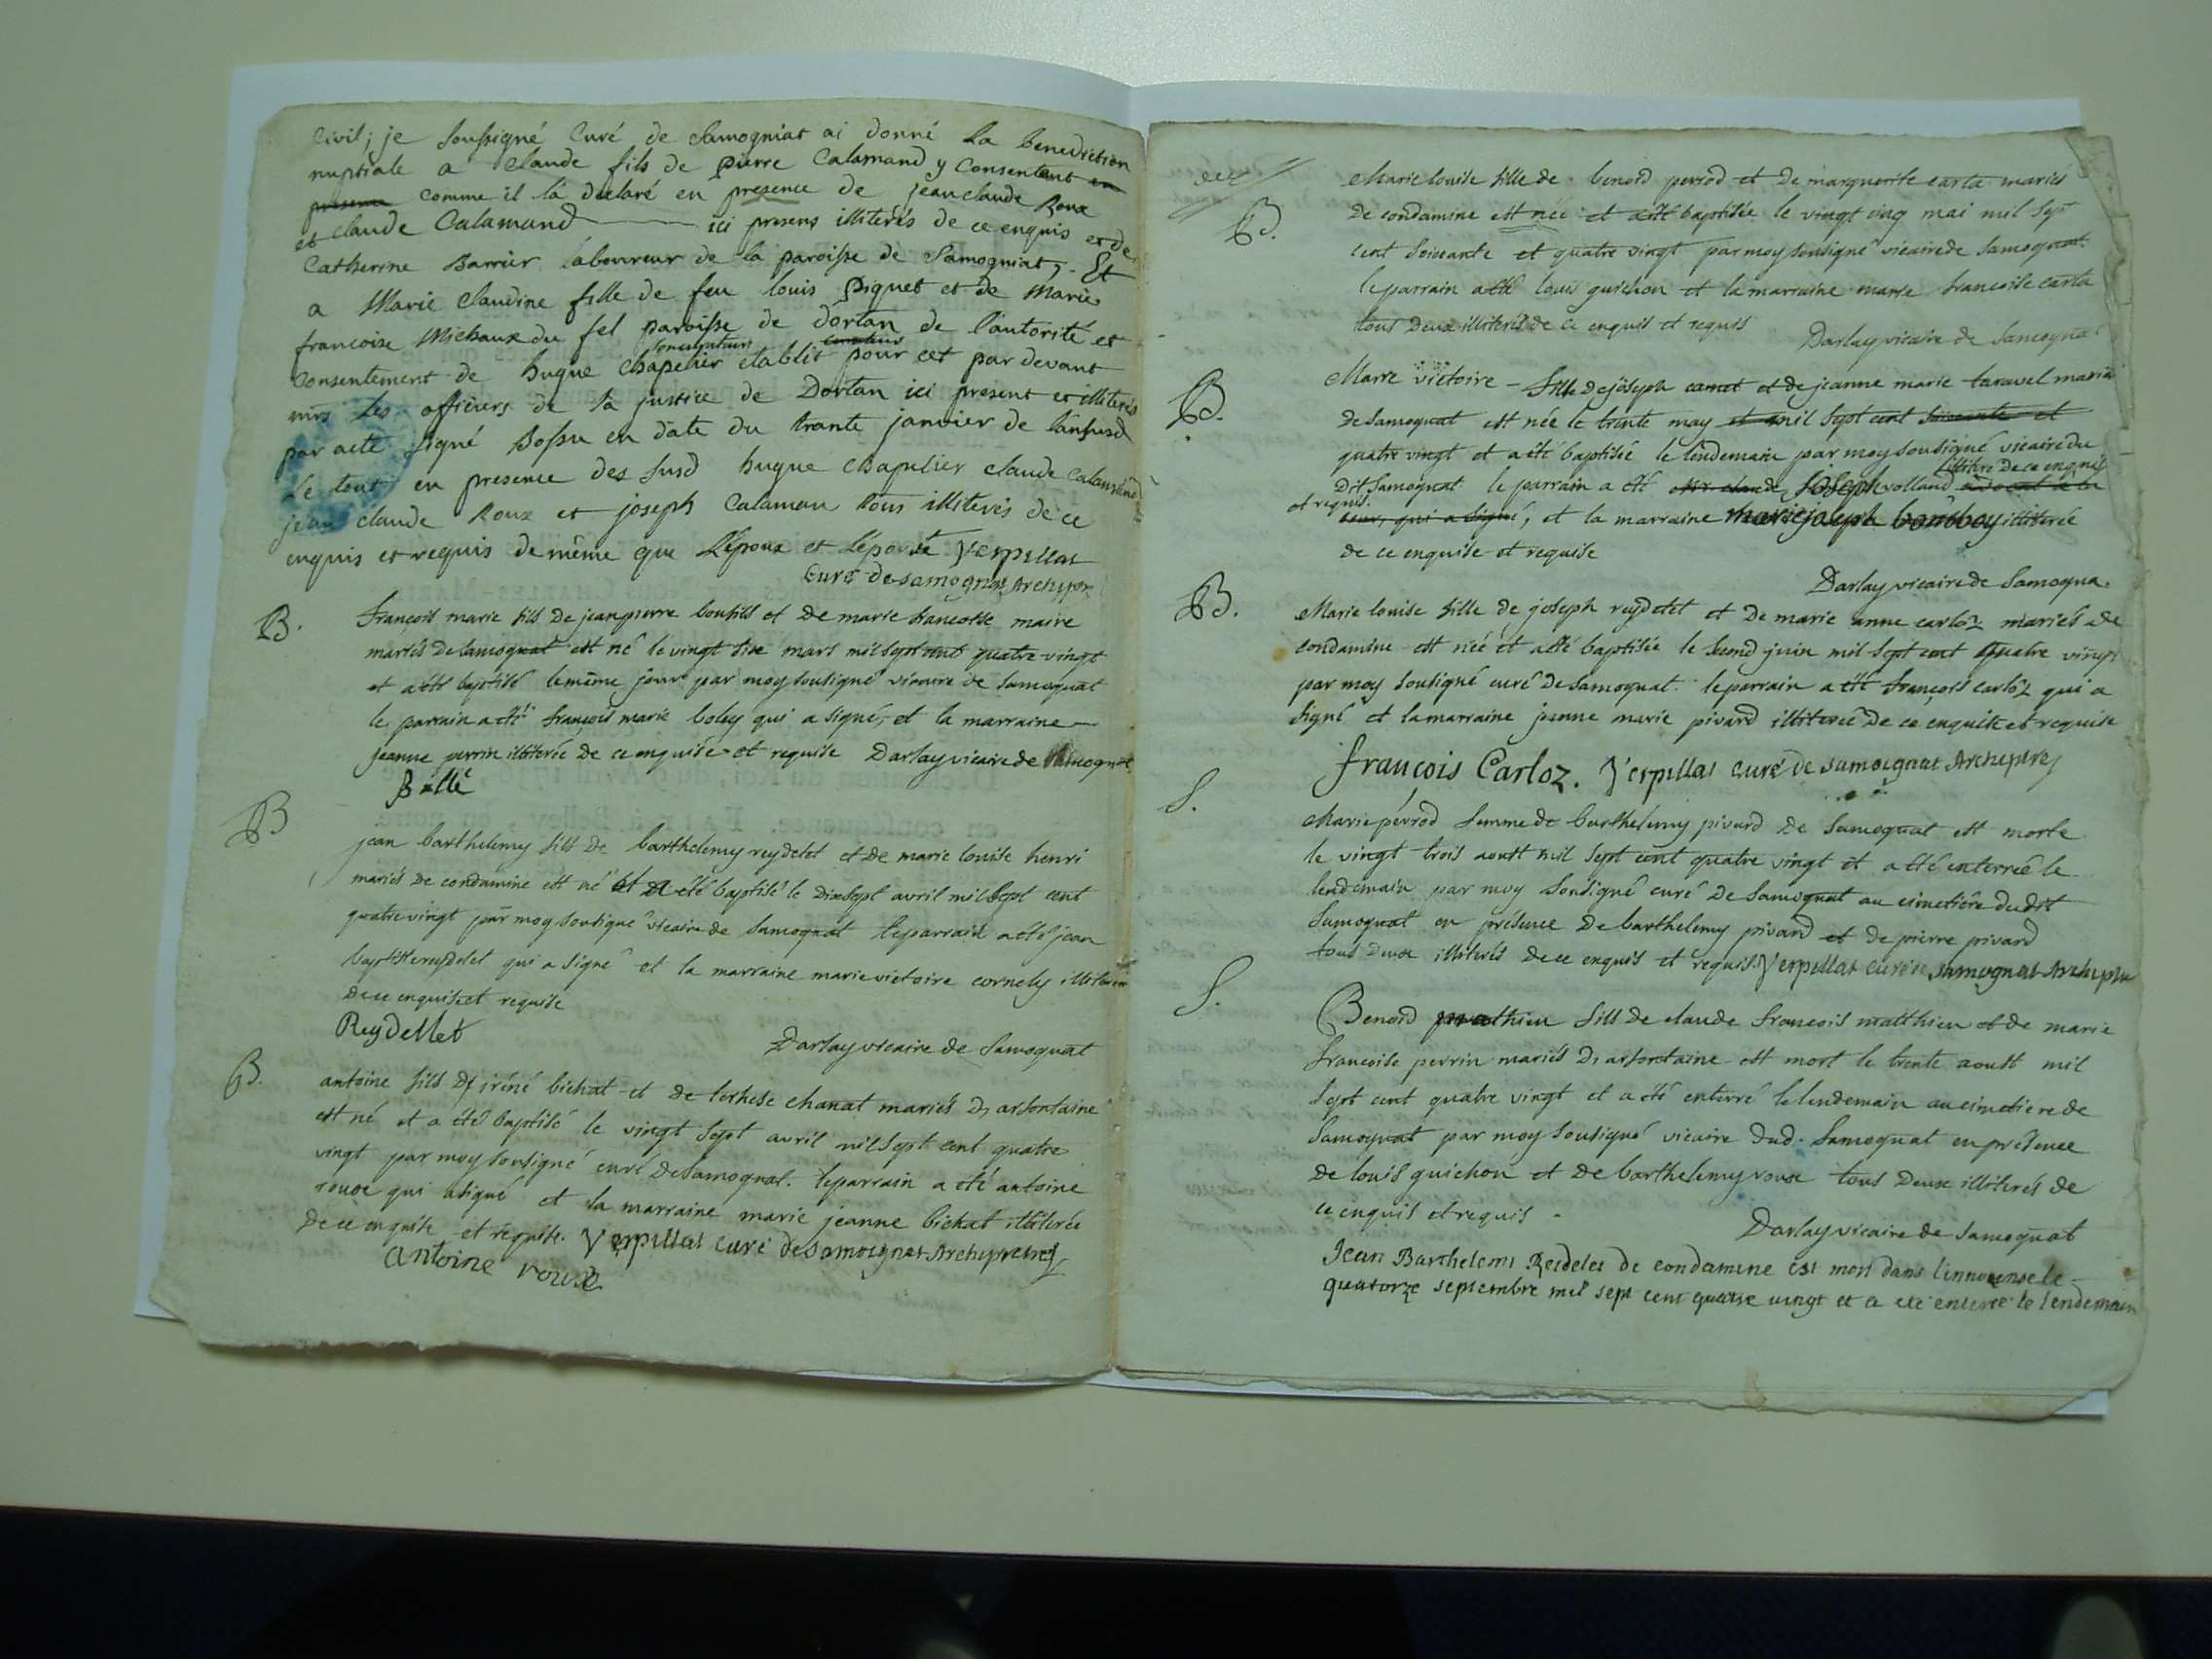 Civil; je soussigné Curé de Samogniat ai donné la benediction
nuptiale a Claude fils de pierre Calamand y Consentant en
presence comme il là declaré en presence de jeanclaude Roux
et claude Calamand ici presens illiterés de ce enquis et de
Catherine Barrier laboureur de la paroisse de Samogniat, Et
a Marie Claudine fille de feu louis Piquet et de Marie
francoise Michaux du fel paroisse de dortan de l'autorité et
consentement de hugue Chapelier etablit pour cet par devant
mrs les officiers de la justice de Dortan ici present et illiterés
par acte signé Bossu en date du trante janvier de l'an susd
Le tout en presence des susd hugue Chapelier claude Calamand
jean claude Roux et joseph Calaman tous illiterés de ce
enquis et requis de même que L'époux et L'épouse Verpillat
Curé de samognat Archipr
B. François marie fils De jeanpierre bonfils et De marie francoise maire
mariés De samognat est né le vingt six mars mil sept cent quatre vingt
et a été baptisé le même jour par moy sousigné vicaire de samognat
le parrain a été françois marie boley qui a signé, et la marraine
jeanne perrin illiterée De ce enquise et requise Darlay vicaire de Samognat
Bollé
B jean barthelemy fils De barthelemy reydelet et De marie louise henri
mariés De condamine est né et a été baptisé le Dixsept avril mil sept cent
quatre vingt par moy sousigné vicaire de samognat le parrain a été jean
baptiste reydelet qui a signé et la marraine marie victoire cornely illiterée
De ce enquise et requise
Reydellet
Darlay vicaire de Samognat
B. antoine fils De iréné bichat et de terhese chanat mariés D'arfontaine
est né et a été baptisé le vingt sept avril mil sept cent quatre
vingt par moy sousigné curé De Samognat. le parrain a été antoine
roux qui a signé et la marraine marie jeanne bichat illiterée
De ce enquise et requise. Verpillat curé de samognat Archipretre
antoine roux
B. Marie louise fille de benoid perrod et De marguerite carta mariés
De condamine est née et a été baptisée le vingt cinq mai mil sept
cent soixante et quatre vingt par moy sousigné vicaire de samognat
le parrain a été louis guichon et la marraine marie francoise carta
tous Deux illiterés de ce enquis et requis
Darlay vicaire de Samogna
B. Marie victoire - fille De joseph carret et de jeanne marie taravel mariés
de Samognat est née le trente may et mil sept cent soixante et
quatre vingt et a été baptisée le lendemain par moy sousigné vicaire du
Dit Samognat le parrain a été Mr claude joseph volland illiteré De ce enquis
et requis. qui a signé, et la marraine marie joseph bomboy illiterée
de ce enquise et requise
Darlay vicaire de Samogna.
B. Marie louise fille de joseph reydelet et De marie anne carloz mariés de
condamine est née et a été baptisée le second juin mil sept cent quatre vingt
par moy sousigné curé De Samognat. le parrain a été françois carloz qui a
signé et la marraine jeanne marie pivard illiterée De ce enquise et requise
françois Carloz. Verpillat curé de samognat Archiptre
S. Marie pérrod femme de barthélemy pivard De Samognat est morte
le vingt trois aoust mil sept cent quatre vingt et a été enterrée le
lendemain par moy sousigné curé De Samognat au cimetière dudit
Samognat en présence De barthelemy pivard et de pierre pivard
tous Deux illiterés De ce enquis et requis. Verpillat curé de samognat Archiptre
S. Benoid mathieu fils de claude francois matthieu et de marie
francoise perrin mariés D'arfontaine est mort le trente aoust mil
sept cent quatre vingt et a été enterré le lendemain au cimetiere de
Samognat par moy sousigné vicaire dud. Samognat en présence
de louis guichon et De barthelemy roux tous Deux illiterés de
ce enquis et requis -
Darlay vicaire de Samognat
Jean Barthelemi Reidelet de condamine est mort dans l'innocense le
quatorze septembre mil sept cent quatre vingt et a été enterré le lendemain